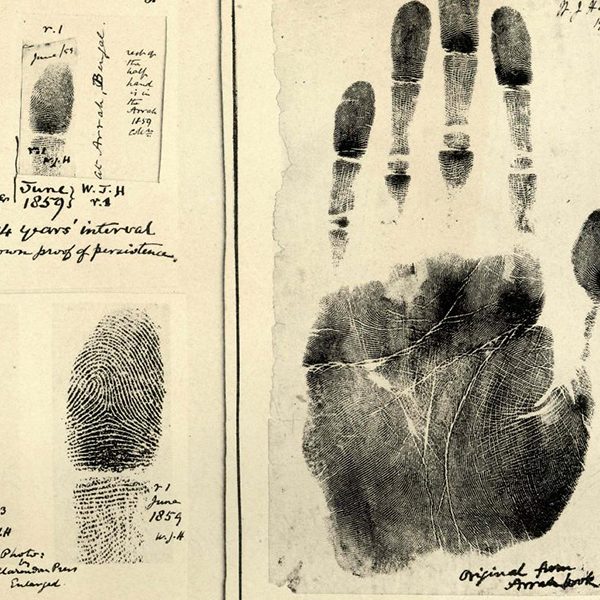 r.1
June/59
at Arrah, Bengal.
rest of
the
half
hand
is in
the
Arrah
1859
W.J.H
June }
1859 }
W.J.H
r.1
4 years' interval
own proof of persistence.
r1
June
1859
W.J.H
3
Photo:
by
Clarendon Press
Enlarged.
Original from
Arrah book